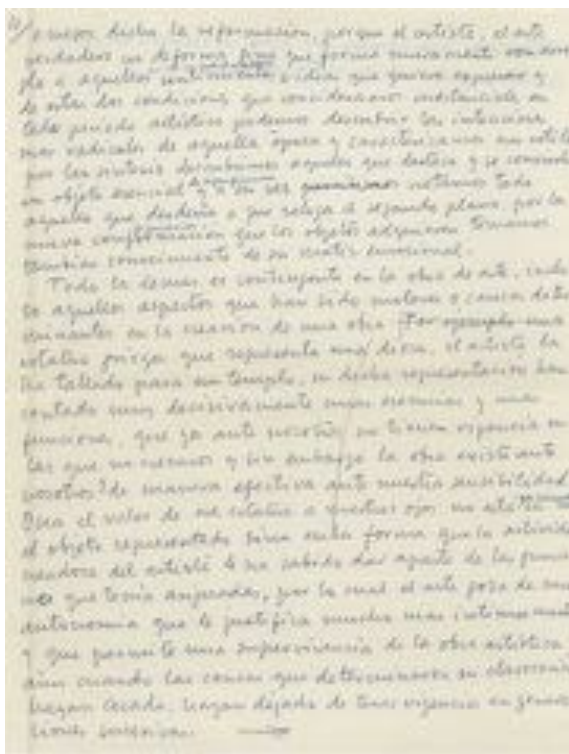 o mejor dicho la reformación, porque el artista, el arte
verdadero es deforma pues que forma nuevamente
a aquellos sentimientos o ideas que quiere expresar y
de estas dos condiciones que consideramos sustanciales en
todo periodo artístico podemos descubrir las intenciones
mas radicales de aquella época y caracterizamos un estilo
por las síntesis descubrimos aquello que destaca y se
un objeto esencial y a su vez notamos todo
aquello que desdeña o que relega a segundo plano, por la
nueva conformación que los objetos adquieren tomamos
tambien conocimiento de su matiz emocional.
Todo lo demas es contingente en la obra de arte, inclu-
so aquellos aspectos que han sido motores o causa deter-
minantes en la creación de una obra. Por ejemplo una
estatua griega que representa una diosa, el artista la
ha tallado para un templo, en dicha representación han
contado muy decisivamente unas creencias y una
funciones, que ya ante nosotros no tienen vigencia en
las que no creemos y sin embargo la obra existe ante
nosotros de manera efectiva ante nuestra sensibilidad.
O sea el valor de esa estatua a nuestros ojos no esta en
el objeto representado sino en la forma que la activida
creadora del artista le ha sabido dar aparte de las
que tenía asignadas, por lo cual el arte goza de una
autonomía que lo justifica mucho mas intimamente
y que permite una supervivencia de la obra artística
aún cuando las causas que determinaron su
hayan cesado, hayan dejado de tener vigencia en genera-
ciones sucesivas.